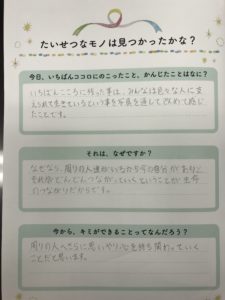 たいせつなモノは見つかったかな？
今日、いちばんココロにのこったこと、かんじたことはなに？
いちばんこころに残った事は、みんなは色々な人に支
えられて生きているという事を写真を通して改めて感じ
たことです。
それは、なぜですか？
なぜなら、周りの人達がいるから今の自分があり、
それがどんどんつながっていくということが生命
のつながりだからです。
今から、キミができることってなんだろう？
周りの人へさらに思いやり心を持ち関わっていく
ことだと思います。